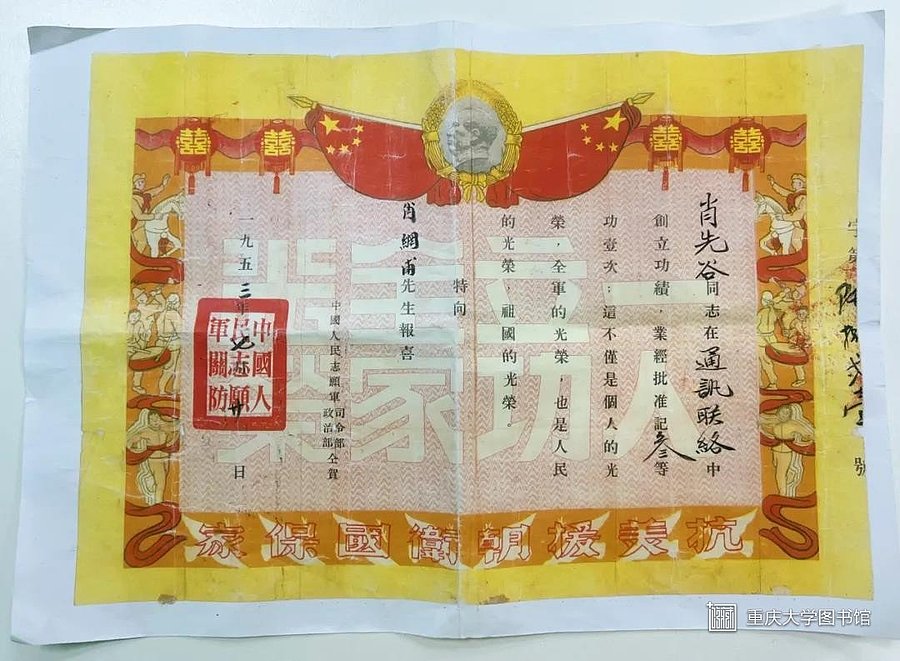 囍 囍 囍 囍
字第
號
肖先谷同志在通訊联絡中
創立功績，業經批准記叁等
功壹次；這不僅是個人的光
榮，全軍的光榮，也是人民
的光榮，祖國的光榮。
特向
肖網甫先生報喜
中國人民志願軍司令部政治部仝賀
一九五三年七月廿日
中國人
民志願
軍關防
一人立功
全家光榮
抗美援朝衛國保家
重庆大学图书馆